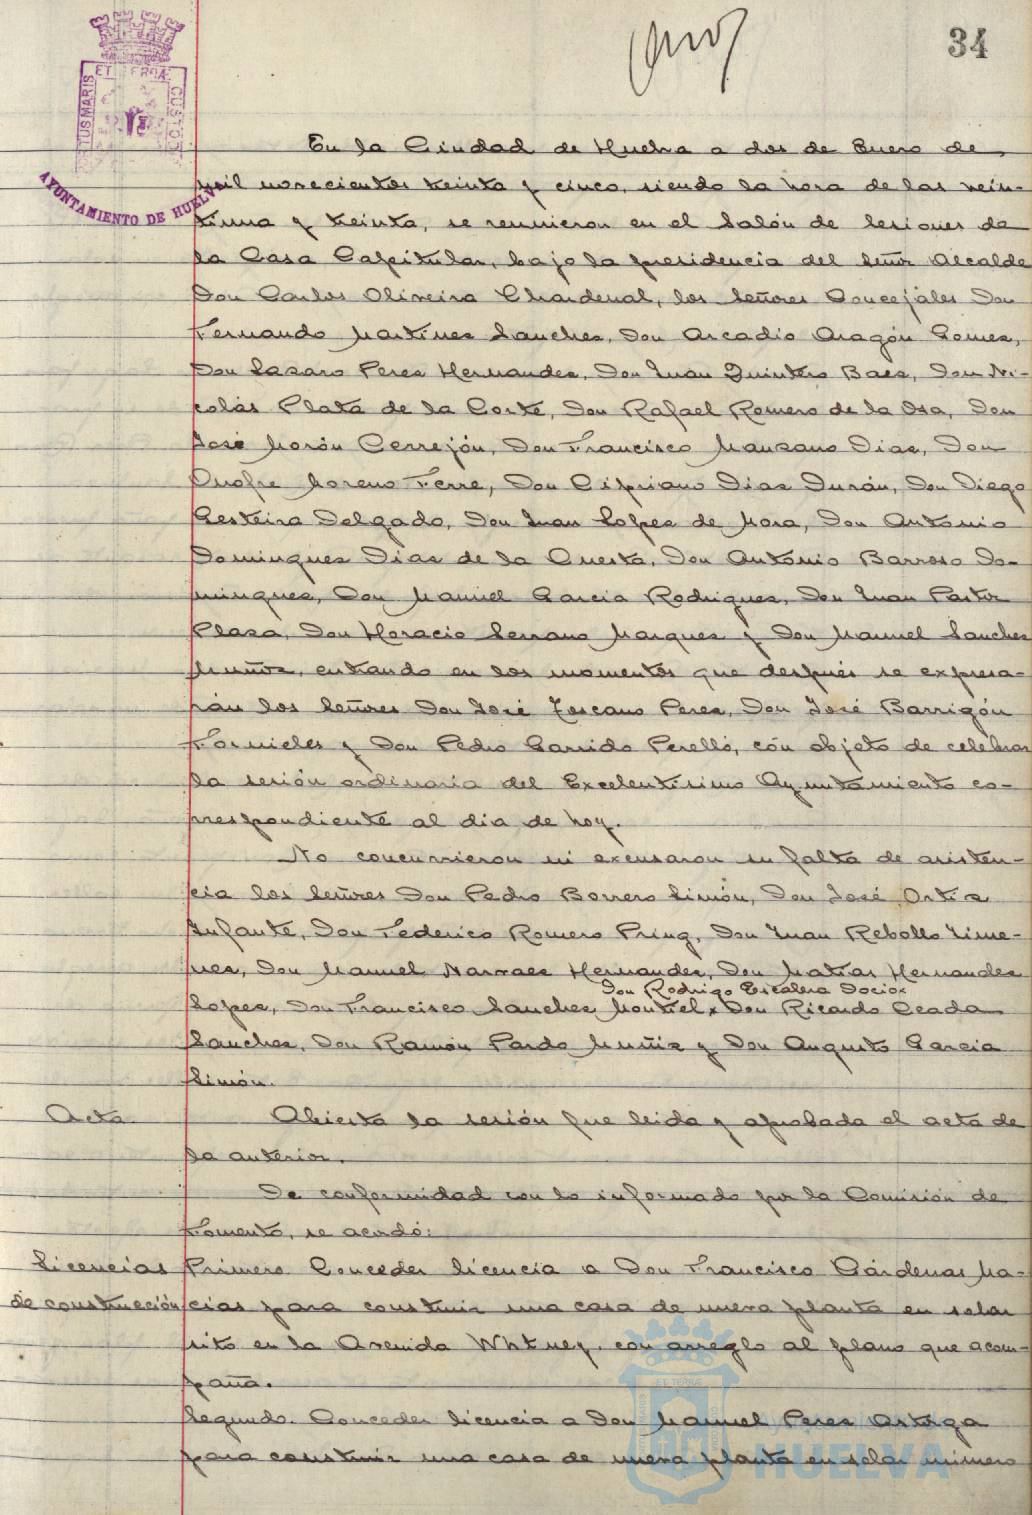 34
ET TERRÆ
PORTUS MARIS
CUSTODIA
AYUNTAMIENTO DE HUELVA
En la Ciudad de Huelva a dos de Enero de
mil novecientos treinta y cinco, siendo la hora de las vein-
tiuna y treinta, se reunieron en el Salón de Sesiones de
la Casa Capitular, bajo la presidencia del Señor Alcalde
Don Carlos Oliveira Chardenal, los Señores Concejales Don
Fernando Martinez Sanchez, Don Arcadio Aragón Gomez,
Don Lazaro Perez Hernandez, Don Juan Quintero Baez, Don Ni-
colás Plata de la Corte, Don Rafael Romero de la Osa, Don
José Morón Cerrejón, Don Francisco Manzano Diaz, Don
Onofre Moreno Ferre, Don Cipriano Diaz Durán, Don Diego
Gesteira Delgado, Don Juan Lopez de Mora, Don Antonio
Dominguez Diaz de la Cuesta, Don Antonio Barroso Do-
minguez, Don Manuel Garcia Rodriguez, Don Juan Pastor
Plaza, Don Horacio Serrano Marquez y Don Manuel Sanchez
Muñoz, entrando en los momentos que después se expresa-
rán los Señores Don José Toscano Perez, Don José Barrigón
Fornieles y Don Pedro Garrido Perelló, con objeto de celebrar
la sesión ordinaria del Excelentisimo Ayuntamiento co-
rrespondiente al dia de hoy.
No concurrieron ni excusaron su falta de asisten-
cia los Señores Don Pedro Borrero Limón, Don José Ortiz
Infante, Don Federico Romero Pring, Don Juan Rebollo Jime-
nez, Don Manuel Narvaez Hernandez, Don Matias Hernandez
Don Rodrigo Escalera Docio x
Lopez, Don Francisco Sanchez Montiel x Don Ricardo Ceada
Sanchez, Don Ramón Pardo Muñiz y Don Augusto Garcia
Limón.
Acta
Abierta la sesión fue leida y aprobada el acta de
la anterior.
De conformidad con lo informado por la Comisión de
Fomento, se acordó:
Licencias
de construcción
Primero Conceder licencia a Don Francisco Cárdenas Ma-
cias para construir una casa de nueva planta en solar
sito en la Avenida Whtney, con arreglo al plano que acom-
paña.
Segundo. Conceder licencia a Don Manuel Perez Ortega
para construir una casa de nueva planta en solar número
HUELVA